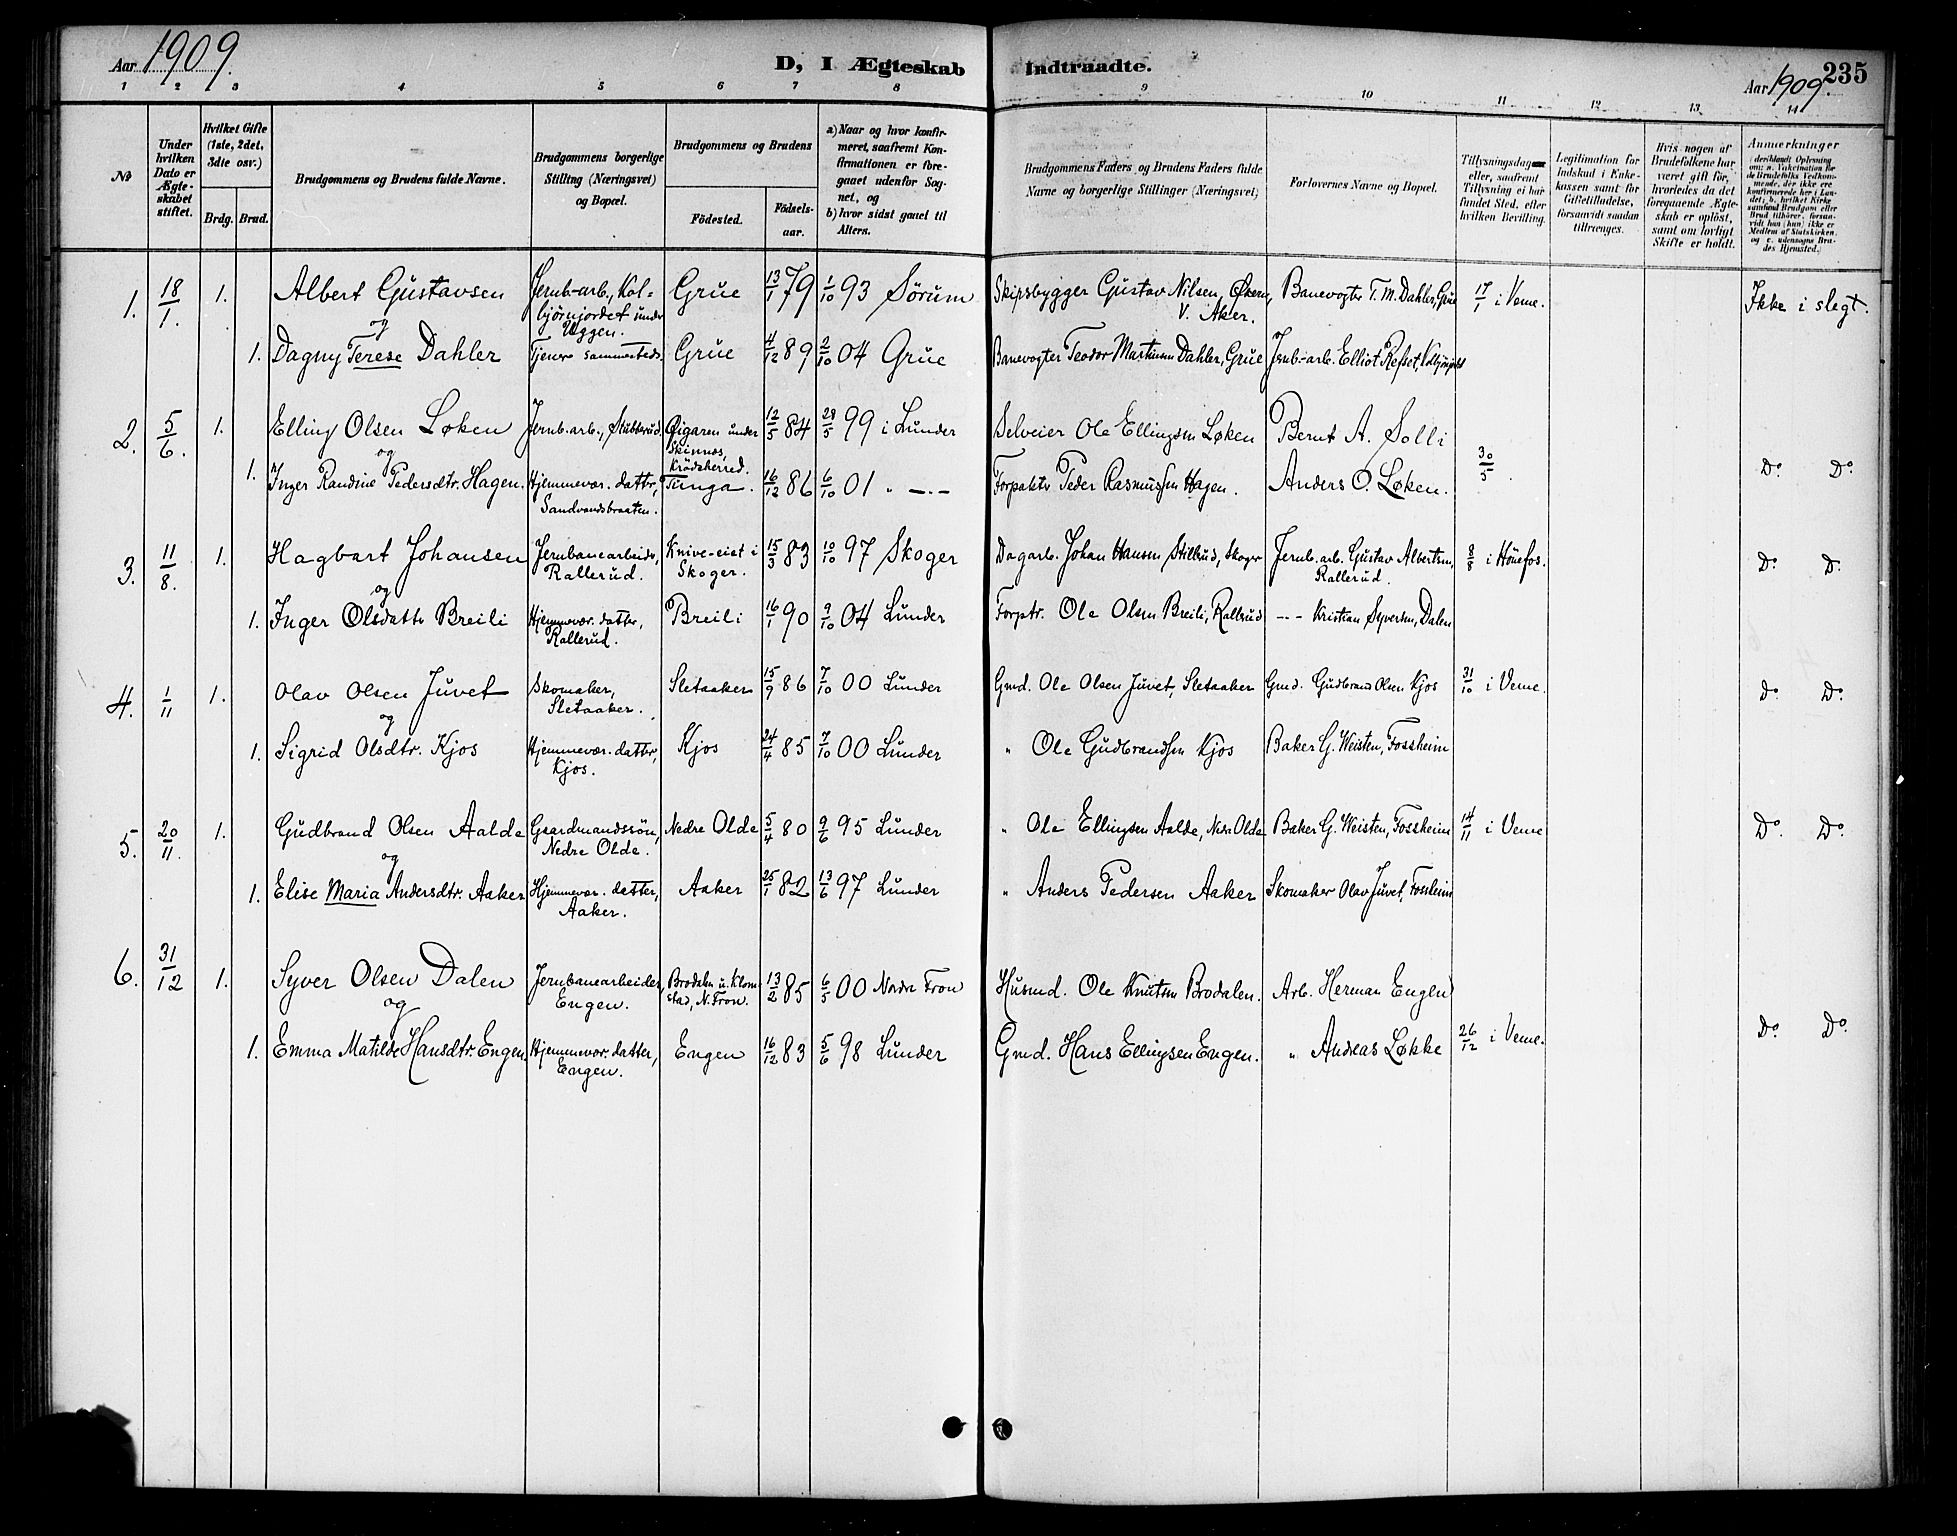 Aar 1909.
D, I Ægteskab Indtraadte.
Aar 1909.
235
1 2 3 4 5 6 7 8 9 10 11 12 13 14
No
Under hvilken Dato er Ægteskabet stiftet.
Hvilket Gifte (1ste, 2det, 3die osv.)
Brdg. Brud.
Brudgommens og Brudens fulde Navne.
Brudgommens borgerlige Stilling (Næringsvei) og Bopæl.
Brudgommens og Brudens
Födested.
Födselsaar.
a) Naar og hvor konfirmeret, saafremt Konfirmationen er foregaaet udenfor Sognet, og
b) hvor sidst gaaet til Alters.
Brudgommens Faders og Brudens Faders fulde Navne og borgerlige Stillinger (Næringsvei)
Forlovernes Navne og Bopæl.
Tillysningsdag eller, saafremt Tillysning ei har fundet Sted, efter hvilken Bevilling.
Legitimation for Indskud i Enkekassen samt for Giftetilladelse, forsaavidt saadan tiltrænges.
Hvis nogen af Brudefolkene har været gift för, hvorledes da det foregaaende Ægteskab er oplöst, samt om lovligt Skifte er holdt.
Anmerkninger
1. 18/1. 1. Albert Gustavsen Jernb.-arb., Kolbjörnjordet under Uggen. Grue 13/1 79 1/10 93 Sörum Skipsbygger Gustav Nilsen, Økern, V. Aker. Banevogter T. M. Dahler, Grue 17/1 i Veme. Ikke i slegt.
og
1. Dagny Terese Dahler Tjener sammesteds. Grue 4/12 89 2/10 04 Grue Banevogter Teodor Martinsen Dahler, Grue Jernb.-arb. Elliot Refset,
2. 5/6. 1. Elling Olsen Løken Jernb.arb., Stubberud. Øigaren under Skinnes, Krödsherred. 12/5 84 28/5 99 i Lunder Selveier Ole Ellingsen Løken Bernt A. Solli 30/5. Do. Do.
og
1. Inger Randine Pedersdtr. Hagen. Hjemmevær. datter, Sandvandsbraaten. Tunga. 16/12 86 6/10 01 " —.— Forpakter Peder Rasmussen Hagen. Anders O. Løken.
3. 11/8. 1. Hagbart Johansen Jernbanearbeider, Rallerud. Knive-eiet i Skoger. 15/3 83 10/10 97 Skoger Dagarb. Johan Hansen Stilkud, Skoger Jernb. arb. Gustav Albertsen, Rallerud. 8/8 i Hönefos. Do. Do.
og
1. Inger Olsdatter Breili Hjemmevær. datter, Rallerud. Breili 16/1 90 9/10 04 Lunder Forptr. Ole Olsen Breili, Rallerud -- Kristian Syversen, Dalen
4. 1/11 1. Olav Olsen Juvet Skomaker, Sletaaker. Sletaaker 15/9 86 7/10 00 Lunder Gmd. Ole Olsen Juvet, Sletaaker Gmd. Gudbrand Olsen Kjos 31/10 i Veme. Do. Do.
og
1. Sigrid Olsdtr. Kjos Hjemmevær. datter, Kjos. Kjos 24/4 85 7/10 00 Lunder " Ole Gudbrandsen Kjos Baker G. Weisten, Fossheim
5. 20/11. 1. Gudbrand Olsen Aalde Gaardmandssön, Nedre Olde. Nedre Olde 5/4 80 9/6 95 Lunder " Ole Ellingsen Aalde, Nedre Olde Baker G. Weisten, Fossheim 14/11 i Veme Do. Do.
og
1. Elise Maria Andersdtr. Aaker Hjemmevær. datter, Aaker. Aaker 25/1 82 13/6 97 Lunder " Anders Pedersen Aaker Skomaker Olav Juvet, Fossheim
6. 31/12 1. Syver Olsen Dalen Jernbanearbeider, Engen. Brodalen u. Klomstad, N. Fron. 13/2 85 6/5 00 Nordre Fron Husmd. Ole Knutsen Brodalen. Arb. Herman Engen
og
1. Emma Matilde Hansdtr. Engen. Hjemmevær. datter, Engen. Engen 16/12 83 5/6 98 Lunder Gmd. Hans Ellingsen Engen. " Andreas Løkke 26/12 i Veme. Do. Do.